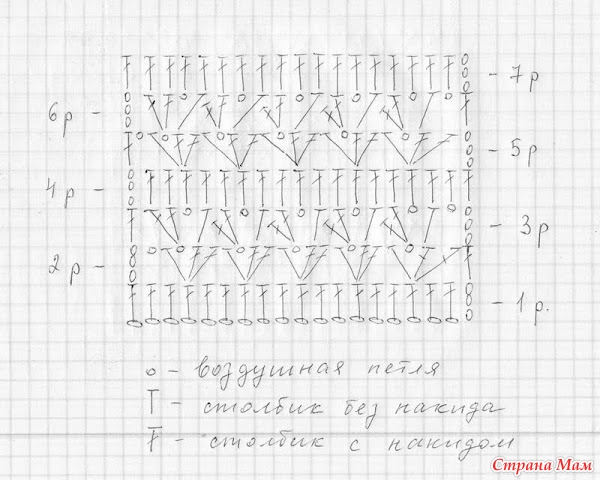 - 7р
6р -
- 5р
4р -
- 3р
2р -
- 1р.
o - воздушная петля
Т - столбик без накида
Ŧ - столбик с накидом
Страна Мам